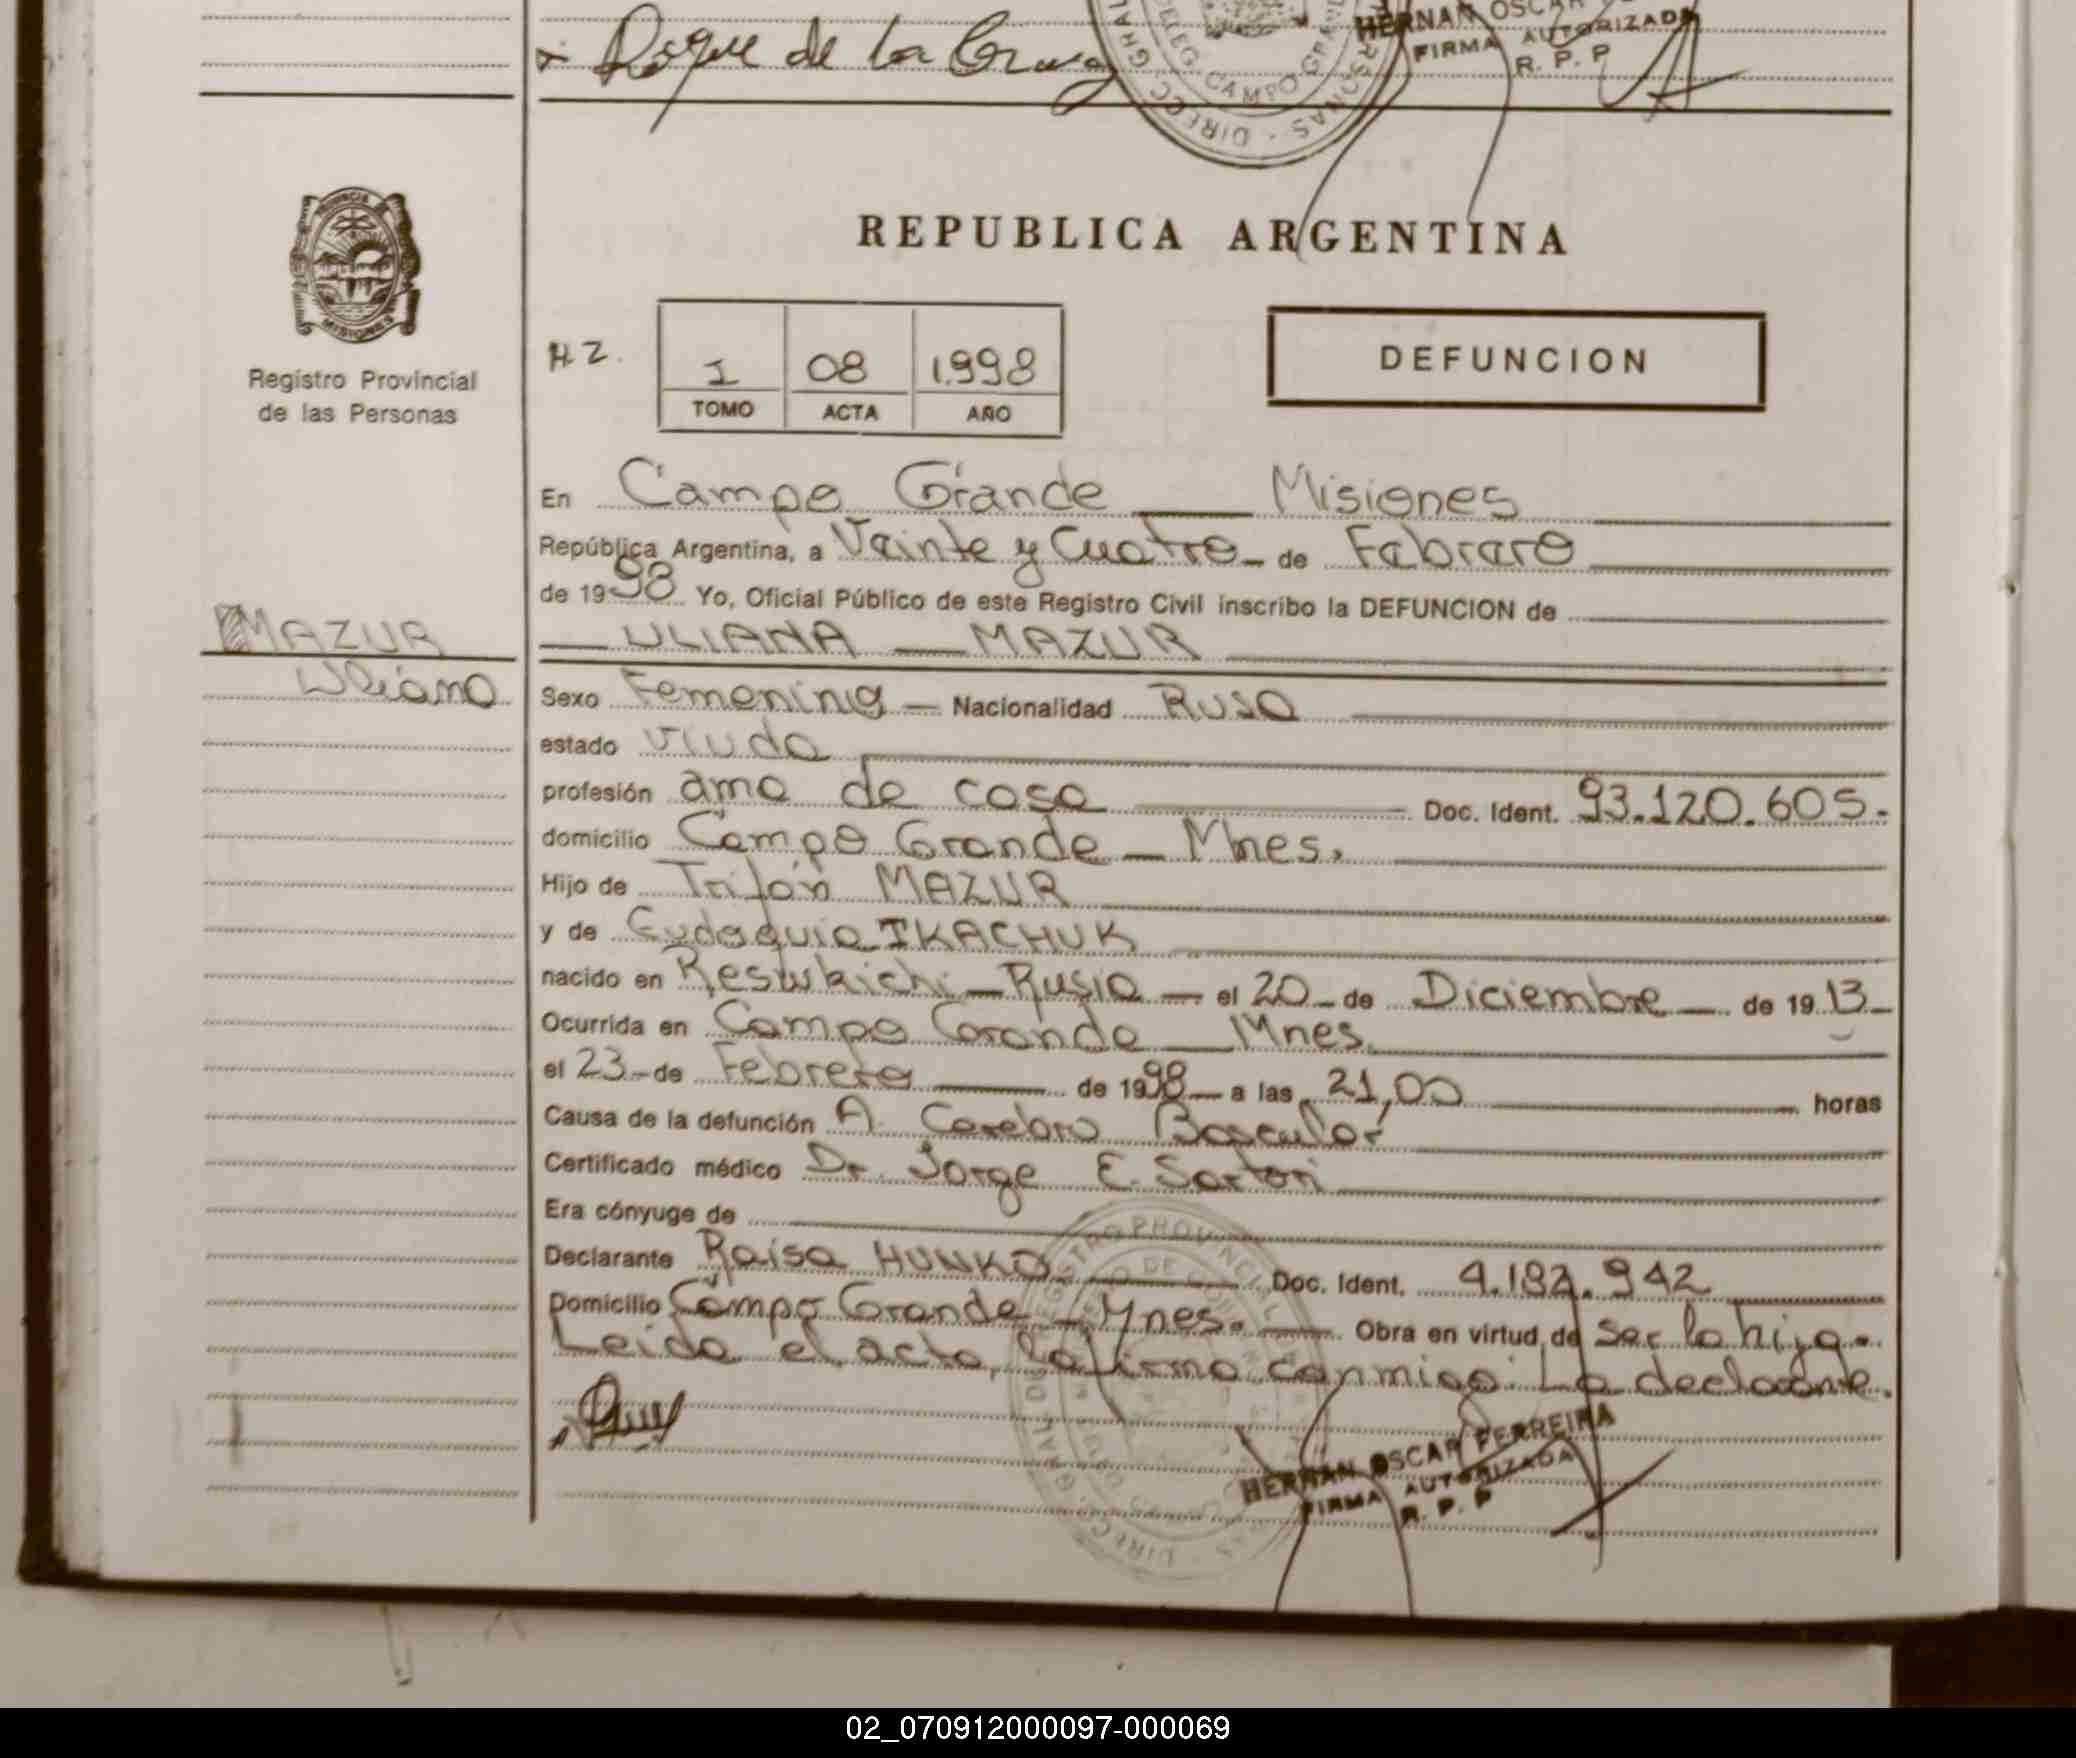 Roque de la Cruz
HERNAN OSCAR
FIRMA AUTORIZADA
R. P. P
CAMPO GRANDE
REPUBLICA ARGENTINA
PROVINCIA DE MISIONES
Registro Provincial
de las Personas
1 08 1.998
TOMO ACTA AÑO
DEFUNCION
En Campo Grande Misiones
República Argentina, a Veinte y Cuatro de Febrero
de 1998 Yo, Oficial Público de este Registro Civil inscribo la DEFUNCION de
ULIANA MAZUR
MAZUR
Uliana
Sexo Femenino Nacionalidad Rusa
estado viuda
profesión ama de casa Doc. Ident. 93.120.605.
domicilio Campo Grande - Mnes.
Hijo de Trifón MAZUR
y de Eudoquia IKACHUK
nacido en Reswkichi - Rusia el 20 de Diciembre de 1913
Ocurrida en Campo Grande Mnes.
el 23 de Febrero de 1998 a las 21,00 horas
Causa de la defunción A. Cerebro Bascular
Certificado médico Dr. Jorge E. Sartori
Era cónyuge de
Declarante Raisa HUNKO Doc. Ident. 4.182.942
Domicilio Campo Grande - Mnes. Obra en virtud de Ser la hija.
Leida el acta, la firma conmigo: La declarante.
HERNAN OSCAR FERREIRA
FIRMA AUTORIZADA
R. P. P
02_070912000097-000069